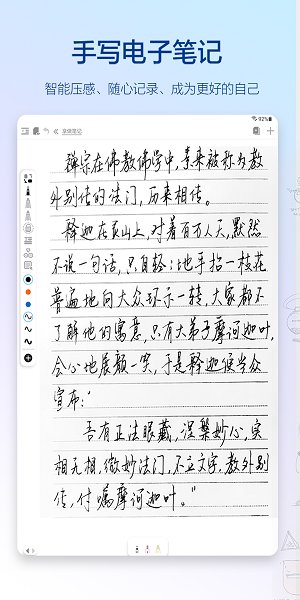 手写电子笔记
智能压感、随心记录、成为更好的自己
92%
拿做笔记
禅宗在佛教佛学中,素来被称为教
外别传的法门,历来相传。
释迦在灵山上,对着百万人天,默然
不说一句话,只自轻轻地手拈一枝花
普遍地向大众环示一转,大家都不
了解他的寓意,只有大弟子摩诃迦叶,
会心地展颜一笑,于是释迦便当众
宣布:“
吾有正法眼藏,涅槃妙心,实
相无相,微妙法门,不立文字,教外别
传,付嘱摩诃迦叶。”